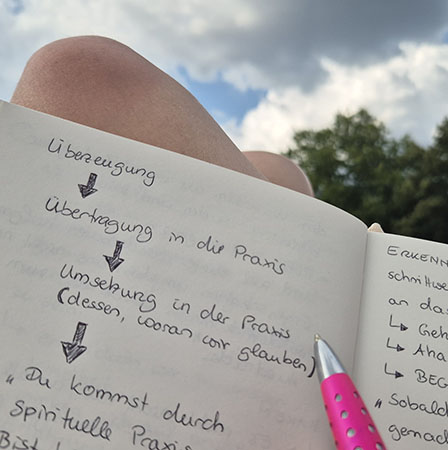 Überzeugung
Übertragung in die Praxis
Umsetzung in der Praxis
(dessen, woran wir glauben)
„Du kommst durch
spirituelle Praxis
Bist
ERKENN
schrittwe
an das
↳ Geh
↳ Aha
↳ BEG
„Sobald
gemach